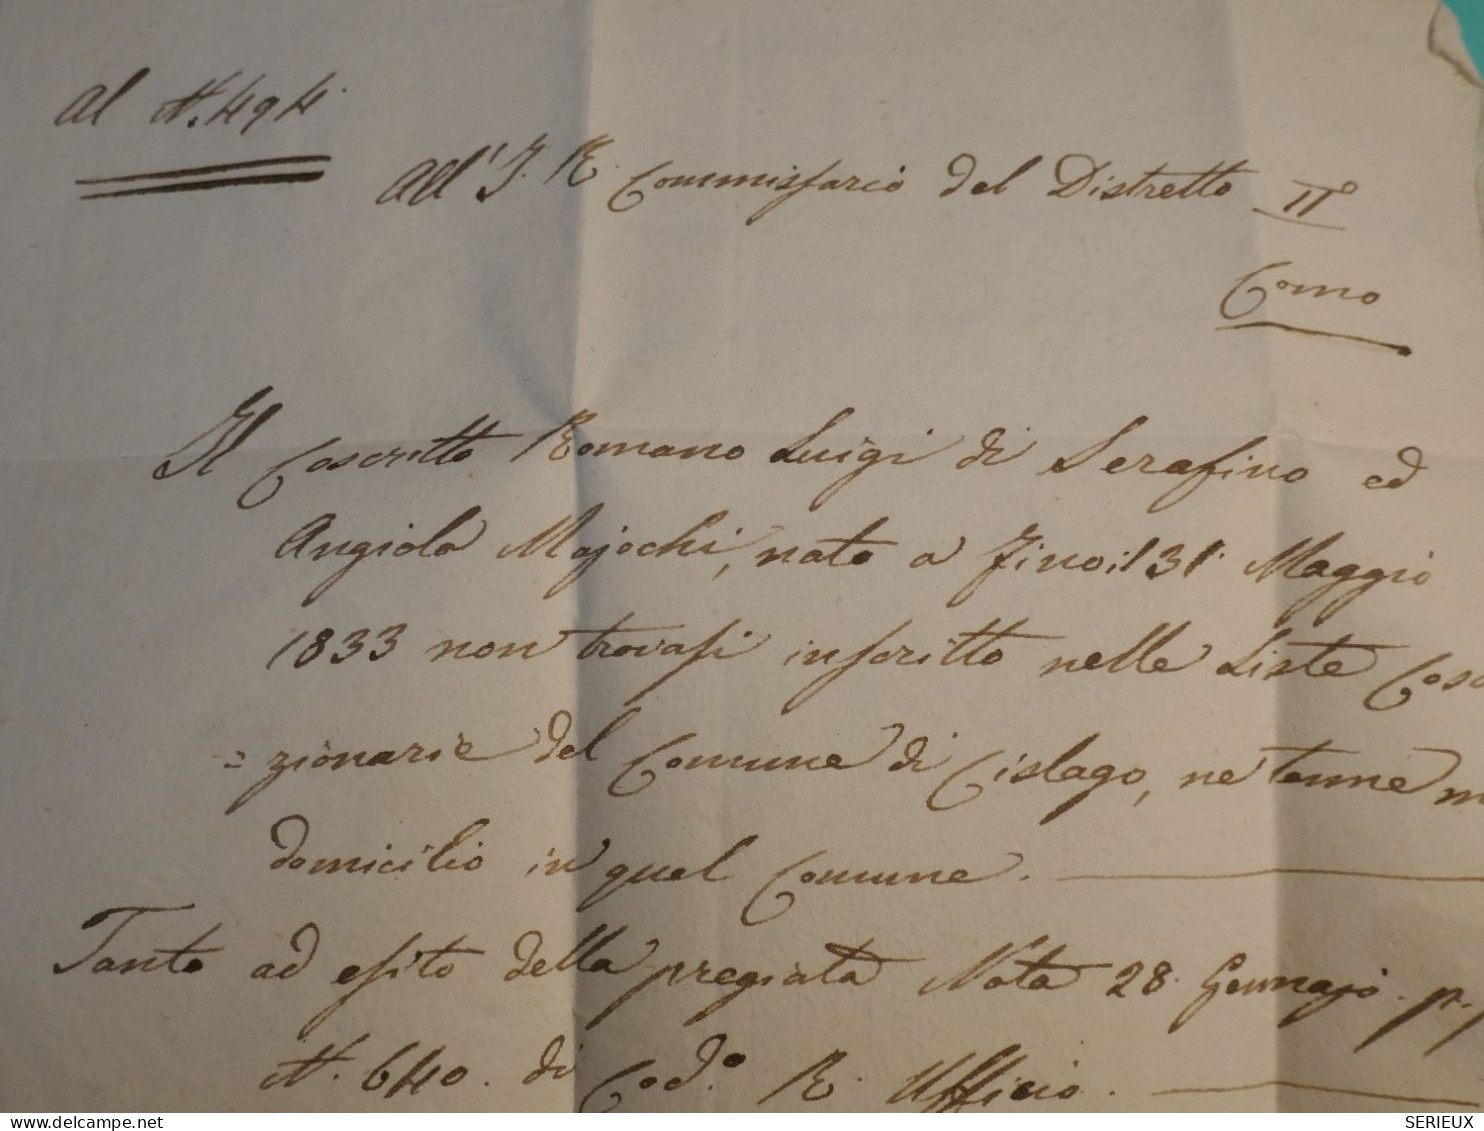 al N. 494.
All' I. R. Commissario del Distretto II°
Como
Il Coscritto Romano Luigi di Serafino ed
Angiola Majochi, nato a Fino il 31 Maggio
1833 non trovasi inscritto nelle Liste Cosc
= zionarie del Comune di Cislago, ne tenne m
domicilio in quel Comune.
Tanto ad esito della pregiata Nota 28. Gennajo. p. p
N. 640. di Cod.° R. Ufficio.
delcampe.net
SERIEUX